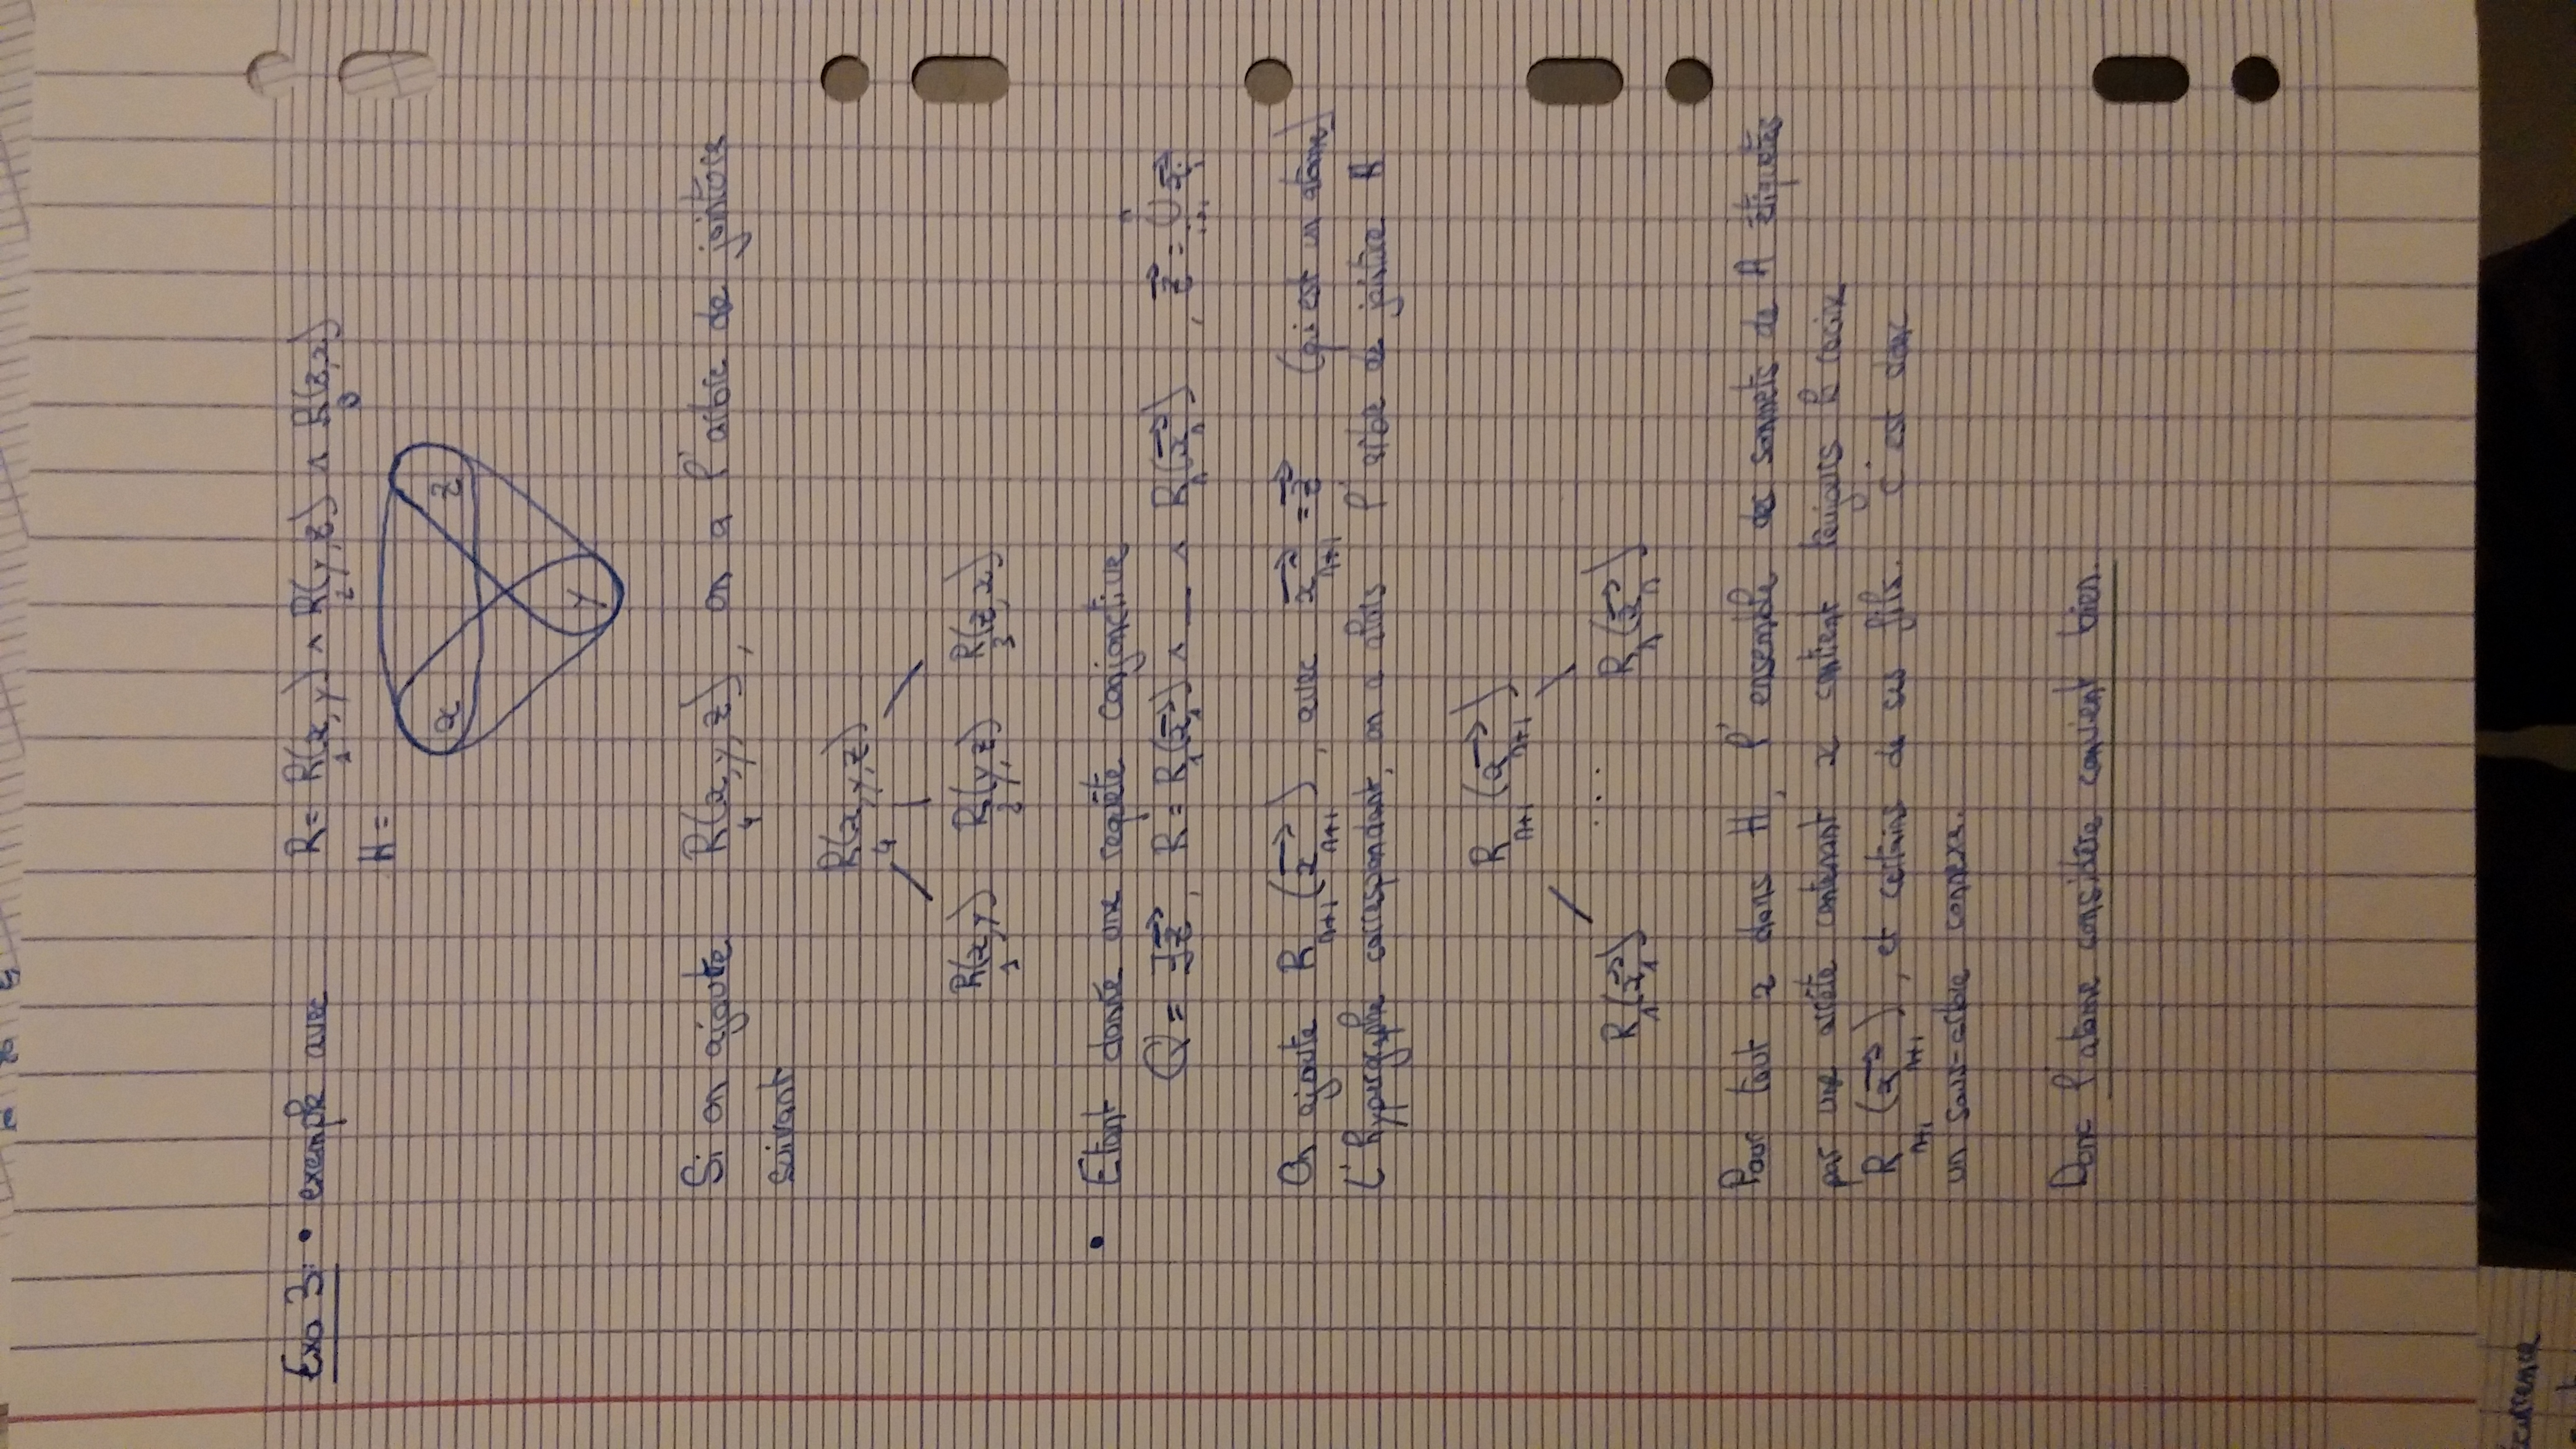 Exo 3: • exemple avec R = R₁(x,y) ∧ R₂(y,z) ∧ R₃(z,x)
H =
x z
y
Si on ajoute R₄(x,y,z), on a l'arbre de jointure
suivant
R₄(x,y,z)
R₁(x,y) R₂(y,z) R₃(z,x)
• Etant donnée une requête conjonctive
Q = ∃z⃗, R = R₁(x⃗₁) ∧ _ ∧ Rₙ(x⃗ₙ) , z⃗ = ⋃ⁿᵢ₌₁ x⃗ᵢ
On ajoute Rₙ₊₁(x⃗ₙ₊₁), avec x⃗ₙ₊₁ = z⃗ (qui est un atome)
L'hypergraphe correspondant, on a alors l'arbre de jointure A
Rₙ₊₁(x⃗ₙ₊₁)
R₁(x⃗₁) ... Rₙ(x⃗ₙ)
Pour tout x dans H, l'ensemble des sommets de A étiquetés
par une arrête contenant x contient toujours la racine
Rₙ₊₁(x⃗ₙ₊₁), et certains de ses fils. C'est donc
un sous-arbre connexe.
Donc l'atome considéré convient bien.